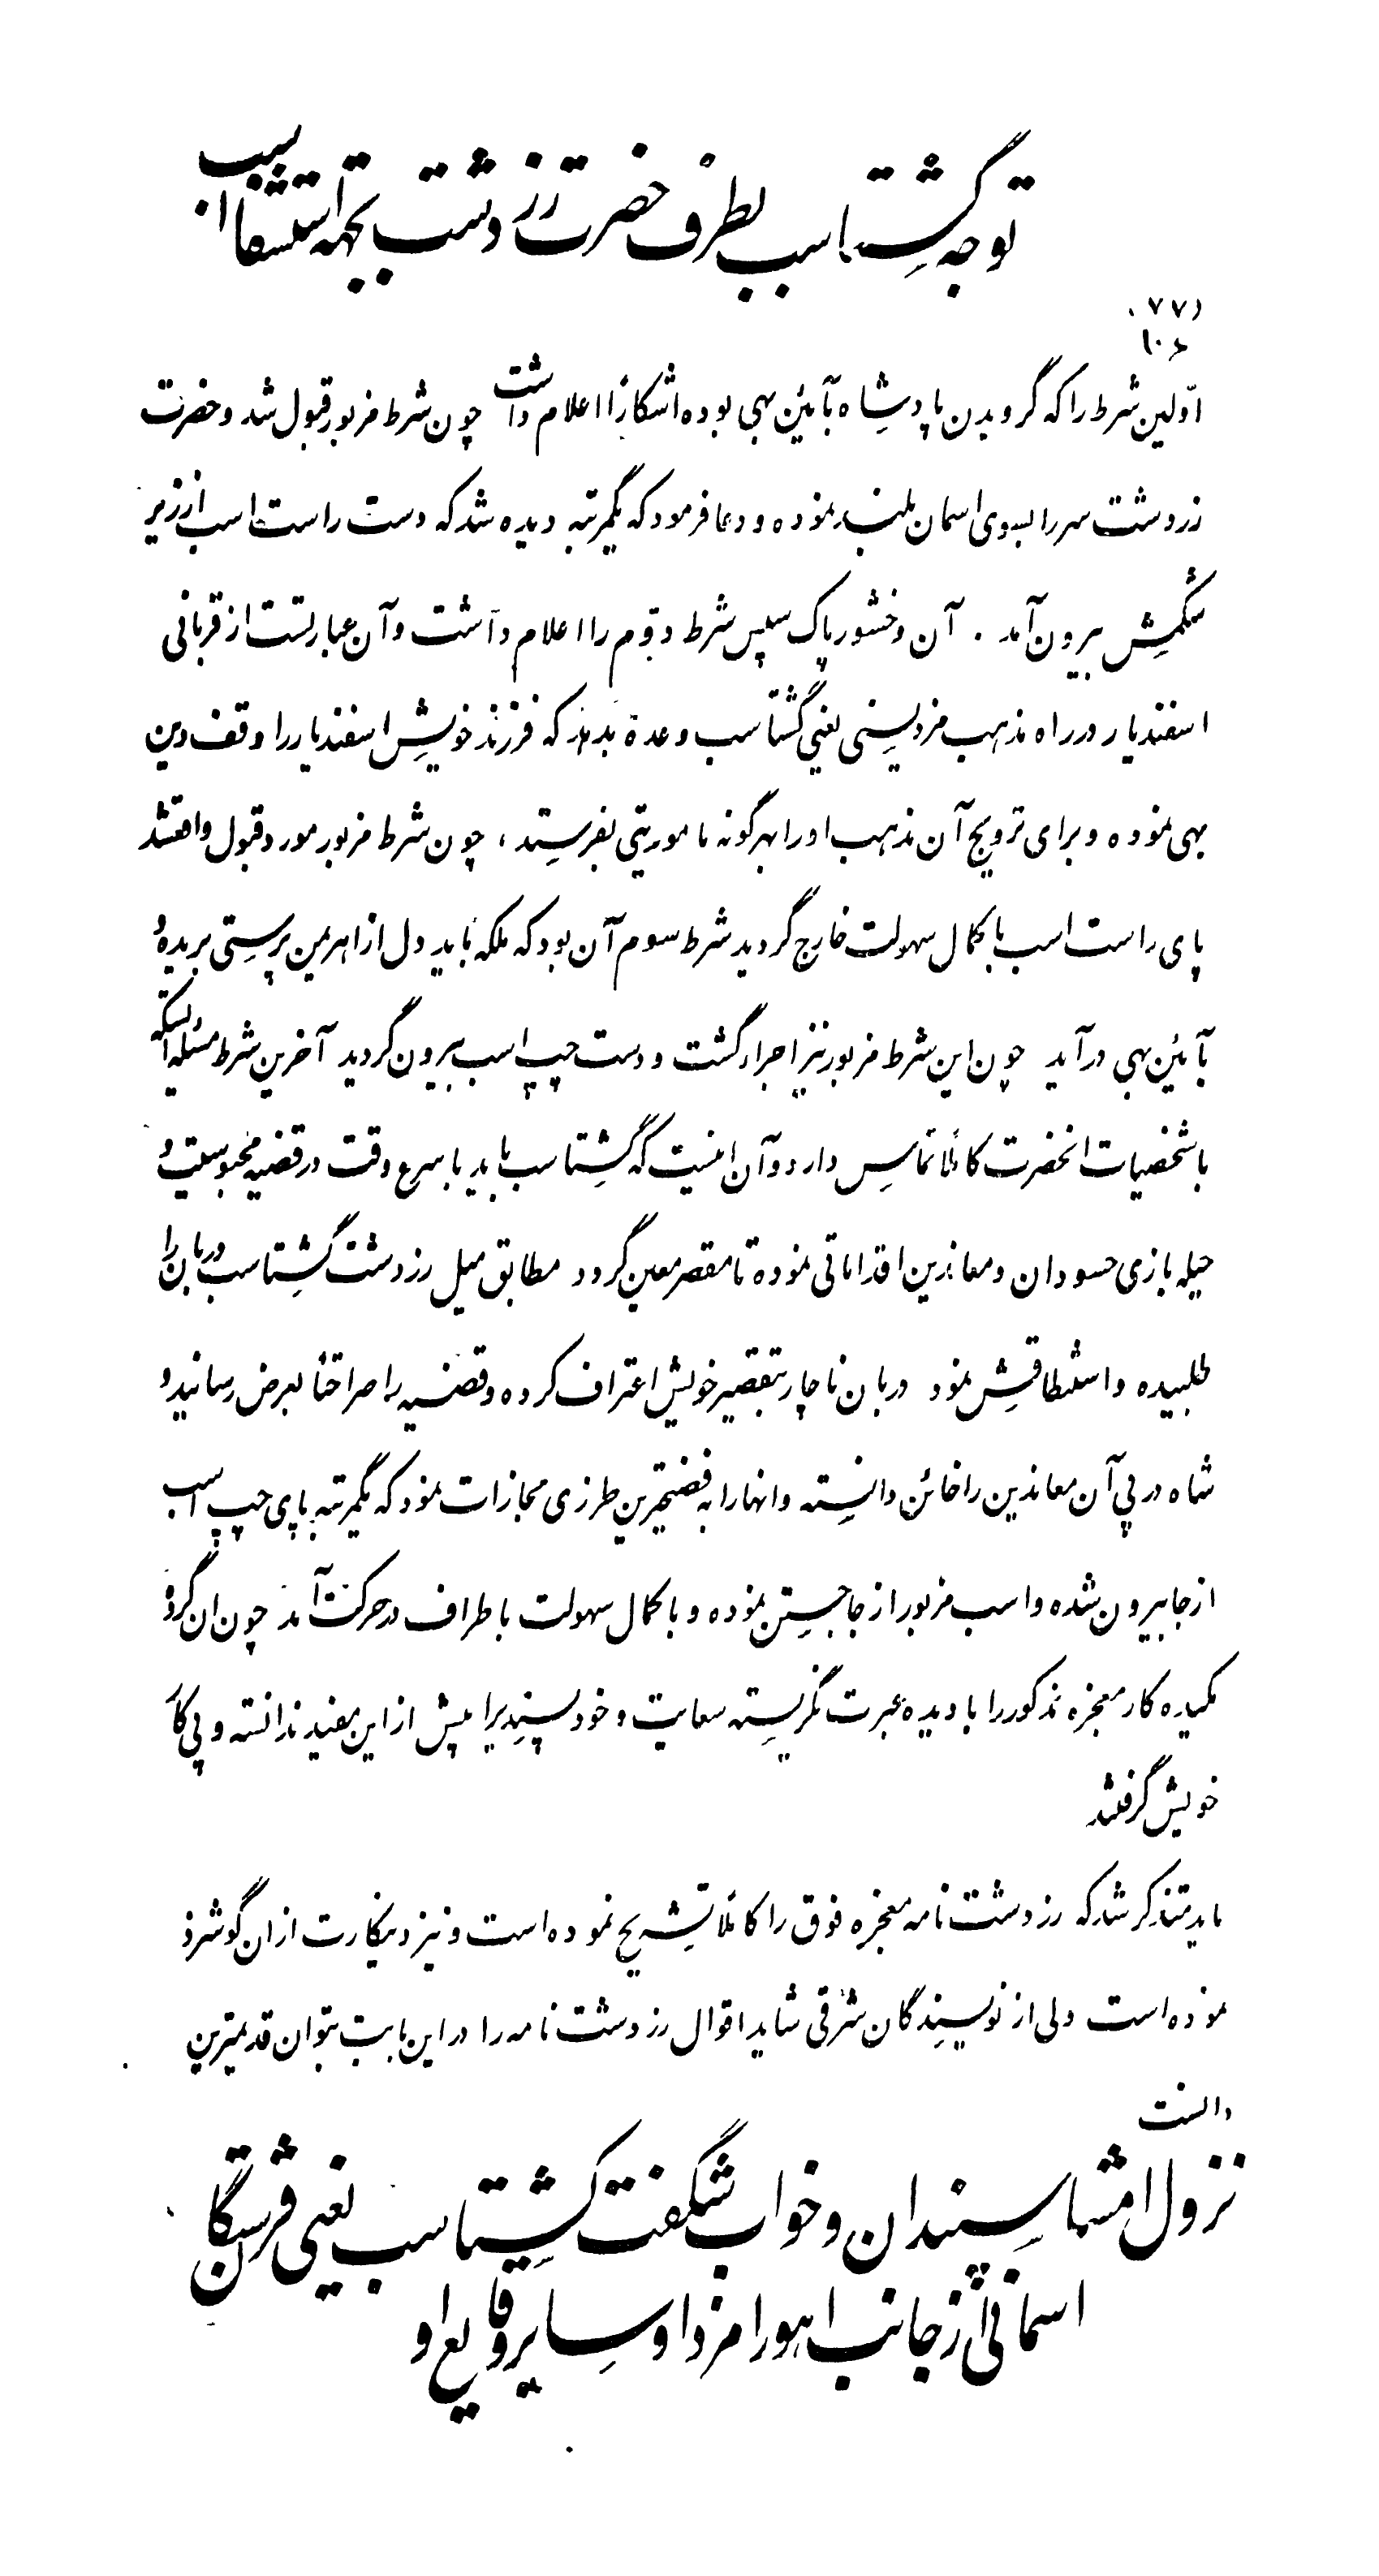 توجه گشتاسب بطرف حضرت زردشت بجهته استشفا اسب
(۷۷)
۱۰۶
اوّلین شرط را که گرویدن پادشاه بآئین بهی بوده اشکارًا اعلام داشت چون شرط مزبور قبول شد و حضرت
زردشت سر را بسوی اسمان بلند نموده و دعا فرمود که یکمرتبه دیده شد که دست راست اسب از زیر
شکمش بیرون آمد . آن وخشور پاک سپس شرط دوّم را اعلام داشت و آن عبارتست از قربانی
اسفندیار در راه مذهب مزدیسنی یعنی گشتاسب وعده بدهد که فرزند خویش اسفندیار را وقف دین
بهی نموده و برای ترویج آن مذهب او را بهرگونه ماموریتی بفرستد ، چون شرط مزبور مورد قبول واقعشد
پای راست اسب با کمال سهولت خارج گردید شرط سوم آن بود که ملکه باید دل از اهریمن پرستی بریده و
بآئین بهی درآید چون این شرط مزبور نیز اجراء گشت و دست چپ اسب بیرون گردید آخرین شرط مسئله ایستکه
با شخصیات انحضرت کاملًا تماس دارد و آن اینست که گشتاسب باید با سرع وقت در قضیه محبوسیت و
حیله بازی حسودان و معاندین اقداماتی نموده تا مقصر معین گردد مطابق میل زردشت گشتاسب دربان را
طلبیده و استنطاقش نمود دربان ناچار بتقصیر خویش اعتراف کرده و قضیه را صراحتًا بعرض رسانید و
شاه در پی آن معاندین را خائن دانسته و انها را به فضیحترین طرزی مجازات نمود که یکمرتبه پای چپ اسب
از جا بیرون شده و اسب مزبور از جا جستن نموده و با کمال سهولت با طراف در حرکت آمد چون ان گروه
مکیده کار معجزه مذکور را با دیده عبرت نگریسته سعایت و خود پسندیرا بیش از این مفید ندانسته و پی کار
خویش گرفتند
باید متذکر شد که زردشت نامه معجزه فوق را کاملًا تشریح نموده است و نیز دینکارت از ان گوشزد
نموده است ولی از نویسندگان شرقی شاید اقوال زردشت نامه را در این بابت بتوان قدیمترین
دانست
نزول امشاسپندان و خواب شگفت گشتاسب یعنی فرشتگان
اسمانی از جانب اهورا مزدا و سایر وقایع او